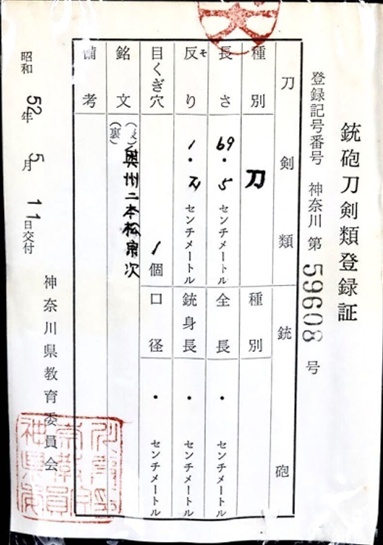 銃砲刀剣類登録証
登録記号番号 神奈川 第 59608 号
刀剣類 銃砲
種別 刀 種別
長さ 69・5 センチメートル 全長 ・ センチメートル
反り 1・ センチメートル 銃身長 ・ センチメートル
目くぎ穴 1個 口径 ・ センチメートル
銘文 (表) 奥州二本松宗次
(裏)
備考
昭和52年5月11日交付
神奈川県教育委員会